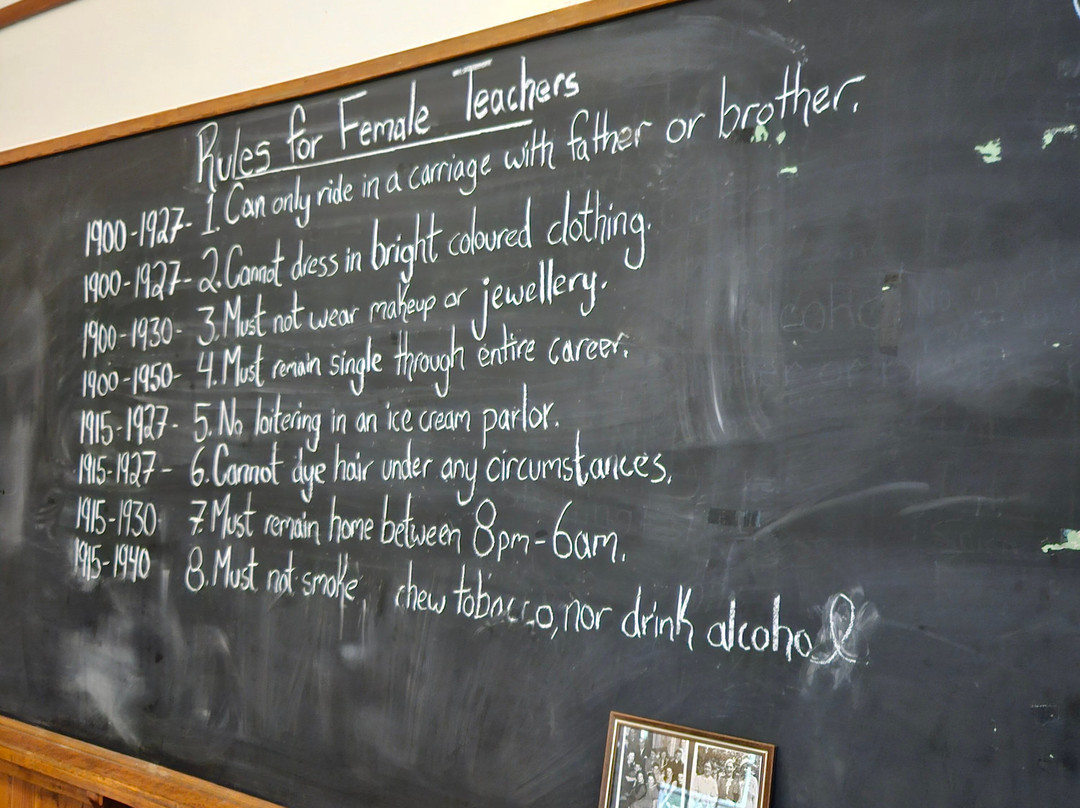 Rules for Female Teachers
1900-1927- 1. Can only ride in a carriage with father or brother.
1900-1927- 2. Cannot dress in bright coloured clothing.
1900-1930- 3. Must not wear makeup or jewellery.
1900-1950- 4. Must remain single through entire career.
1915-1927- 5. No loitering in an ice cream parlor.
1915-1927- 6. Cannot dye hair under any circumstances.
1915-1930 7. Must remain home between 8pm-6am.
1915-1940 8. Must not smoke, chew tobacco, nor drink alcohol